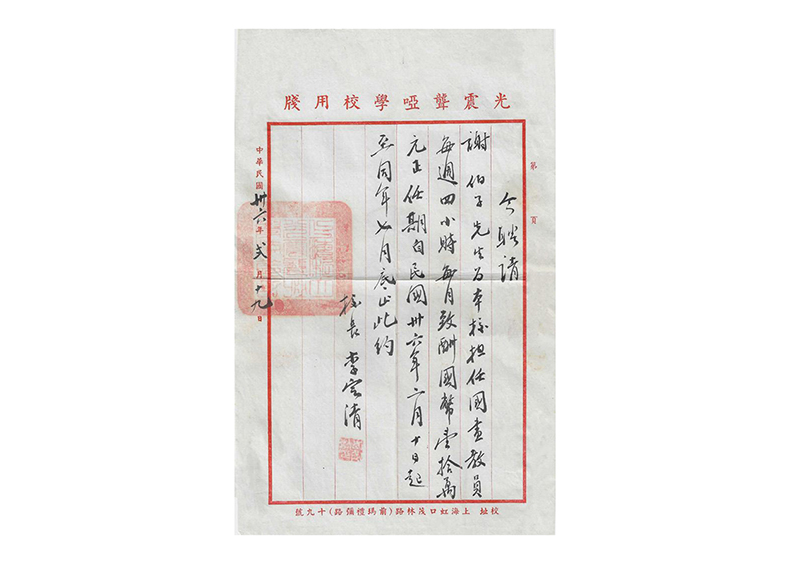 光震聾啞學校用牋
第 頁
今聘請
謝伯子先生為本校担任國畫教員
每週四小時每月致酬國幣壹拾萬
元正任期自民國卅六年二月十日起
至同年七月底止此約
校長 李定清
中華民國卅六年弍月十九日
校址 上海虹口茂林路(前瑪禮彌路)十九號